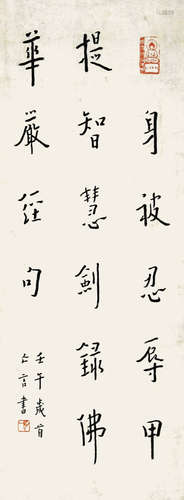 身被忍辱甲
提智慧劍錄佛
華嚴經句
壬午歲首
亡言書